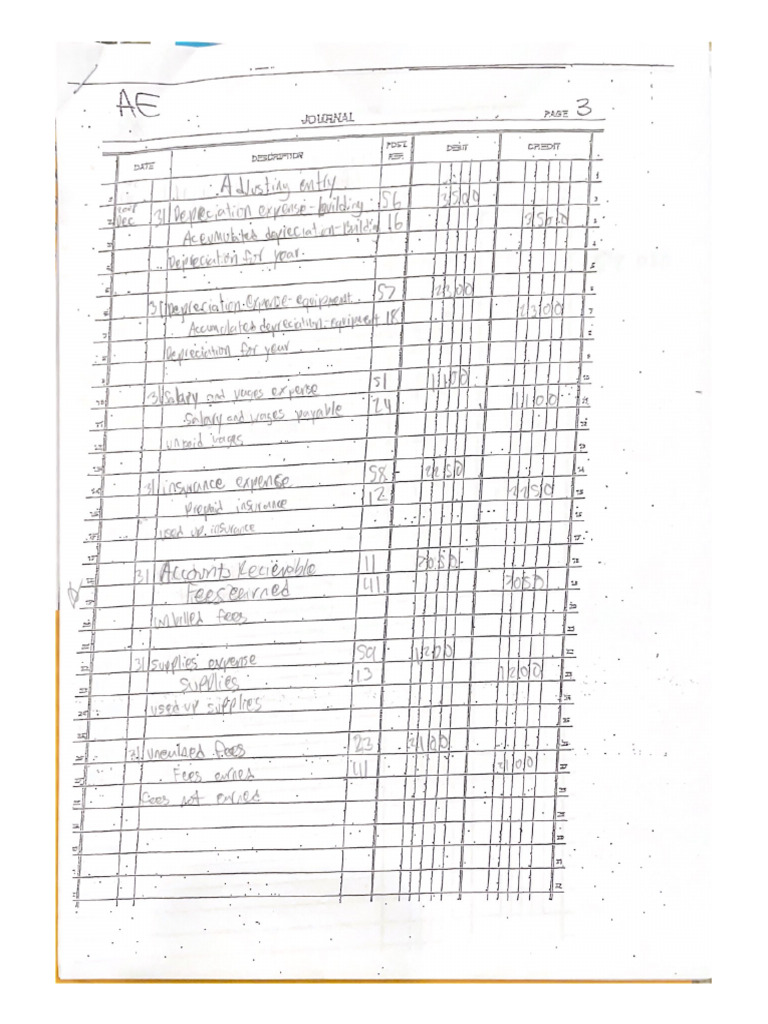 AE
JOURNAL PAGE 3
DATE DESCRIPTION POST REF. DEBIT CREDIT
Adjusting entry
Dec 31 Depreciation expense-building 56 3500
Accumulated depreciation-Building 16 3500
Depreciation for year.
31 Depreciation Expense-equipment 57 2300
Accumulated depreciation-equipment 18 2300
Depreciation for year
31 Salary and wages expense 51 1100
Salary and wages payable 24 1100
unpaid wages
31 insurance expense 58 2250
Prepaid insurance 12 2250
used up insurance
31 Accounts Recievable 11 3050
Fees earned 41 3050
unbilled fees
31 supplies expense 59 1200
supplies 13 1200
used up supplies
31 Fees 23 2100
Fees earned 41 2100
Fees not earned